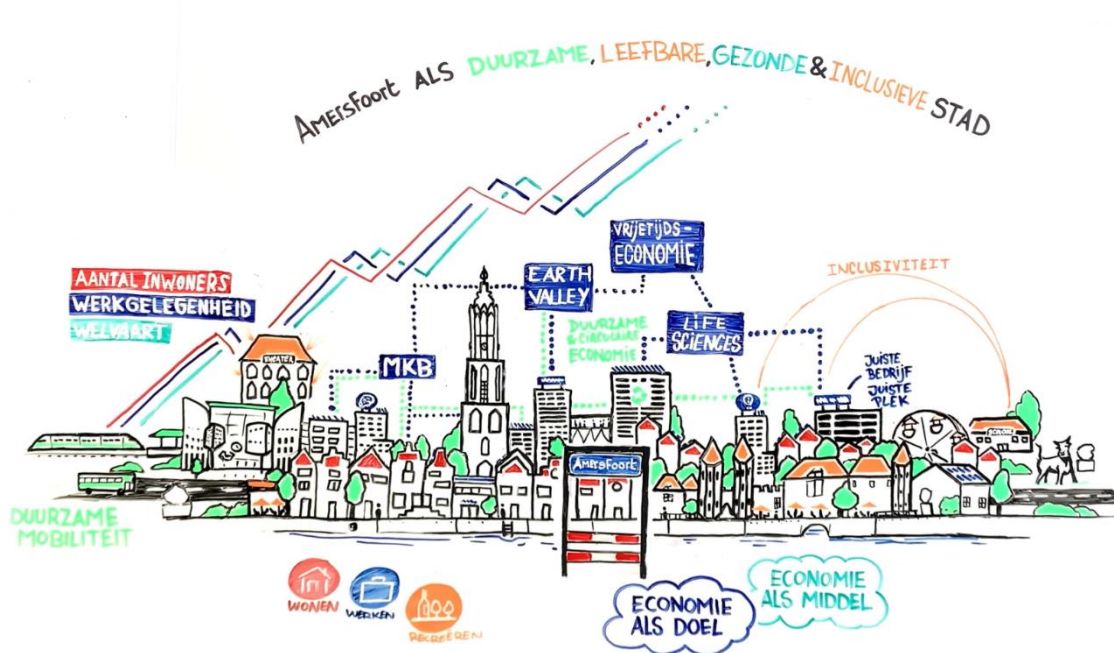 Amersfoort ALS DUURZAME, LEEFBARE, GEZONDE & INCLUSIEVE STAD
AANTAL INWONERS
WERKGELEGENHEID
WELVAART
VRIJETIJDS-
ECONOMIE
EARTH
VALLEY
LIFE
SCIENCES
MKB
DUURZAME
& CIRCULAIRE
ECONOMIE
INCLUSIVITEIT
JUISTE
BEDRIJF
JUISTE
PLEK
THEATER
Amersfoort
DUURZAME
MOBILITEIT
WONEN
WERKEN
RECREËREN
ECONOMIE
ALS DOEL
ECONOMIE
ALS MIDDEL